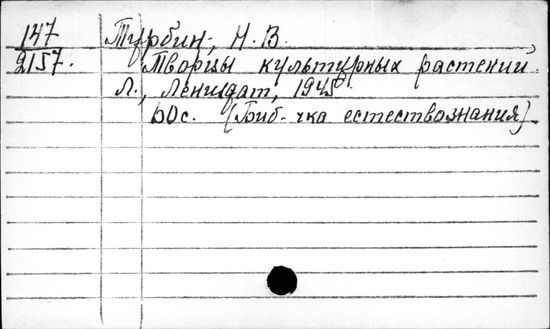 147 Турбин, Н. В.
2157. Творцы культурных растений.
Л., Лениздат, 1945.
60с. (Биб-чка естествознания)